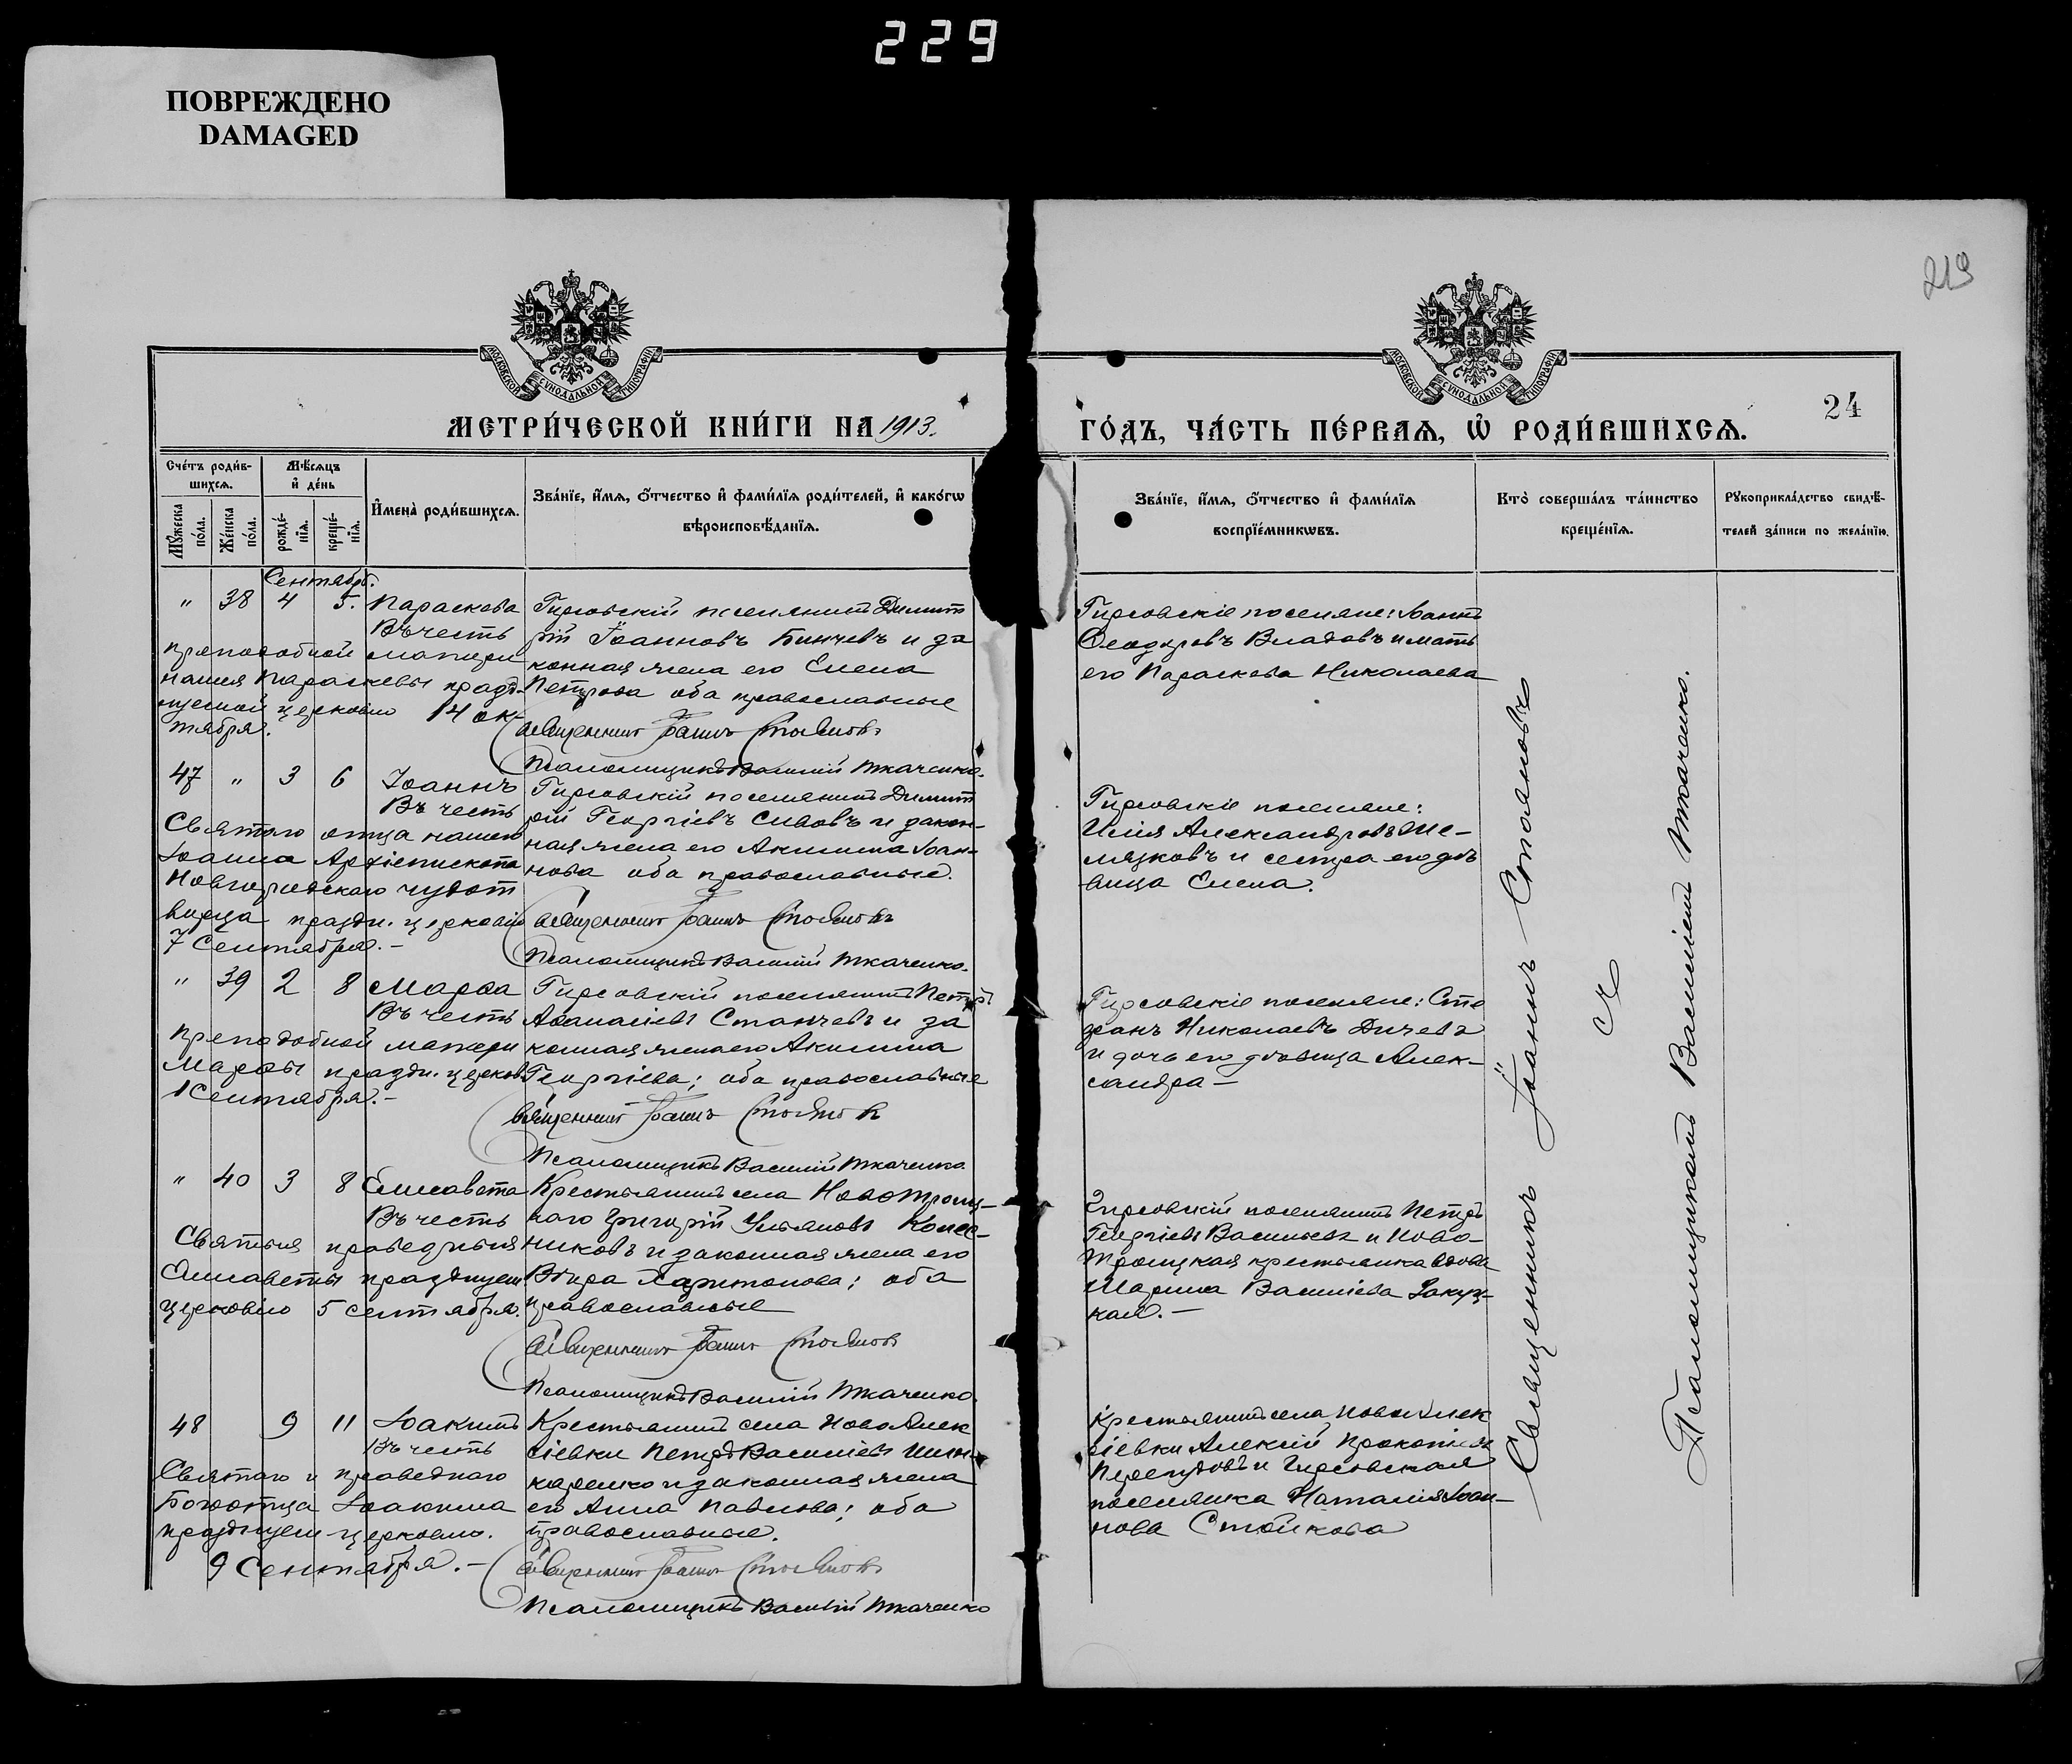 229
ПОВРЕЖДЕНО
DAMAGED
219
МОСКОВСКОЙ СѴНОДАЛЬНОЙ ТИПОГРАФІИ
МОСКОВСКОЙ СѴНОДАЛЬНОЙ ТИПОГРАФІИ
24
МЕТРИ́ЧЕСКОЙ КНИ́ГИ НА 1913.
ГО́ДЪ, ЧА́СТЬ ПЕ́РВАѦ, Ѡ҆ РОДИ́ВШИХСѦ.
Сче́тъ роди́в-
шихсѧ.
Мѣ́сѧцъ
и҆ де́нь
Мꙋ́жеска
по́ла.
Же́нска
по́ла.
рожде́-
нїѧ.
креще́-
нїѧ.
И҆мена̀ роди́вшихсѧ.
Зва́нїе, и҆́мѧ, ѻ҆́тчество и҆ фами́лїѧ роди́телей, и҆ како́гѡ
вѣроисповѣ́данїѧ.
Зва́нїе, и҆́мѧ, ѻ҆́тчество и҆ фами́лїѧ
воспрїе́мникѡвъ.
Кто̀ соверша́лъ та́инство
креще́нїѧ.
Рꙋкоприкла́дство свидѣ́-
телей за́писи по жела́нїю.
Сентябрь.
" 38 4 5. Параскева
Въ честь
преподобной матери
нашея Параскевы празд-
нуемой церковію 14 ок-
тября.
Гирсовскій поселянинъ Димит
рій Іоанновъ Бинчевъ и за
конная жена его Елена
Петрова оба православные
Священникъ Іоаннъ Стояновъ
Псаломщикъ Василій Ткаченко.
Гирсовскіе поселяне: Іоаннъ
Ѳеодоровъ Владовъ и мать
его Параскева Николаева
47 " 3 6 Іоаннъ
Въ честь
Святаго отца нашего
Іоанна Архіепископа
Новгородскаго чудот
ворца праздн. церковію
7 Сентября.-
Гирсовскій поселянинъ Димит
рій Георгіевъ Сивовъ и закон-
ная жена его Акилина Іоан-
нова оба православные.
Священникъ Іоаннъ Стояновъ
Псаломщикъ Василій Ткаченко.
Гирсовскіе поселяне:
Илія Александровъ
и сестра его дѣ
вица Елена.
" 39 2 8 Марѳа
Въ честь
Преподобной матери
Марѳы праздн. церков.
1 Сентября.-
Гирсовскій поселянинъ Петръ
Аѳанасіевъ Станчевъ и за
конная жена его Акилина
Георгіева; оба православные
Священникъ Іоаннъ Стояновъ
Псаломщикъ Василій Ткаченко
Гирсовскіе поселяне: Сте
фанъ Николаевъ Дичевъ
и дочь его дѣвица Алек-
сандра-
" 40 3 8 Елисавета
Въ честь
Святыя праведныя
Елисаветы празднуем
церковію 5 сентября.
Крестьянинъ села Новотроиц-
каго Григорій Ульяновъ Колес-
никовъ и законная жена его
Вѣра Харитонова; оба
православные
Священникъ Іоаннъ Стояновъ
Псаломщикъ Василій Ткаченко.
Гирсовскій поселянинъ Петръ
Георгіевъ Васильевъ и Ново-
троицкая крестьянка вдова
Марина Василіева
кая.-
48 9 11 Іоакимъ
Въ честь
Святаго и праведнаго
Богоотца Іоакима
празднуем церковію.
9 Сентября.-
Крестьянинъ села НовоАлек
сіевки Петръ Василіевъ Шин-
каренко и законная жена
его Анна Павлова; оба
православные.
Священникъ Іоаннъ Стояновъ
Псаломщикъ Василій Ткаченко
Крестьянинъ села НовоАлек
сіевки Алексій Прокопіевъ
и Гирсовская
поселянка Наталія Іоан-
нова Стойкова
Священникъ Іоаннъ Стояновъ
съ
Псаломщикомъ Василіемъ Ткаченко.